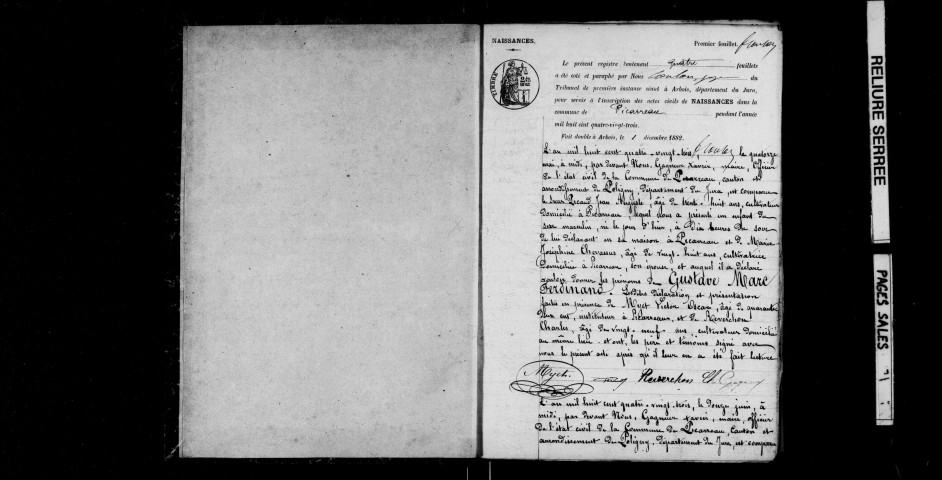 NAISSANCES.
Premier feuillet.
Le présent registre contenant quatre feuillets
a été coté et paraphé par Nous juge du
Tribunal de première instance séant à Arbois, département du Jura,
pour servir à l'inscription des actes civils de NAISSANCES dans la
commune de Picarreau pendant l'année
mil huit cent quatre-vingt-trois.
Fait double à Arbois, le 1 décembre 1882.
TIMBRE
L'an mil huit cent quatre-vingt-trois, le quatorze
mai, à midi, par devant Nous, Gagneur Xavier, maire, officier
de l'état civil de la Commune de Picarreau, canton et
arrondissement de Poligny, département du Jura, est comparu
le sieur Jean Auguste, âgé de trente-huit ans, cultivateur
domicilié à Picarreau, lequel nous a présenté un enfant du
sexe masculin, né le jour d'hier, à dix heures du soir
de lui déclarant en sa maison à Picarreau et de Marie
Joséphine Chevassus, âgé de vingt-huit ans, cultivatrice
domiciliée à Picarreau, son épouse, et auquel il a déclaré
vouloir donner les prénoms de Gustave Marc
Ferdinand. Lesdites déclaration et présentation
faites en présence de Myet Victor Oscar, âgé de quarante
deux ans, instituteur à Picarreau, et de Reverchon
Charles, âgé de vingt-neuf ans, cultivateur domicilié
au même lieu et ont, les père et témoins signé avec
nous le présent acte après qu'il leur en a été fait lecture
Reverchon Ch.
L'an mil huit cent quatre-vingt-trois, le douze juin, à
midi, par devant Nous, Gagneur Xavier, maire, officier
de l'état civil de la Commune de Picarreau, Canton et
arrondissement de Poligny, département du Jura, est comparu
RELIURE SERREE
PAGES SALES